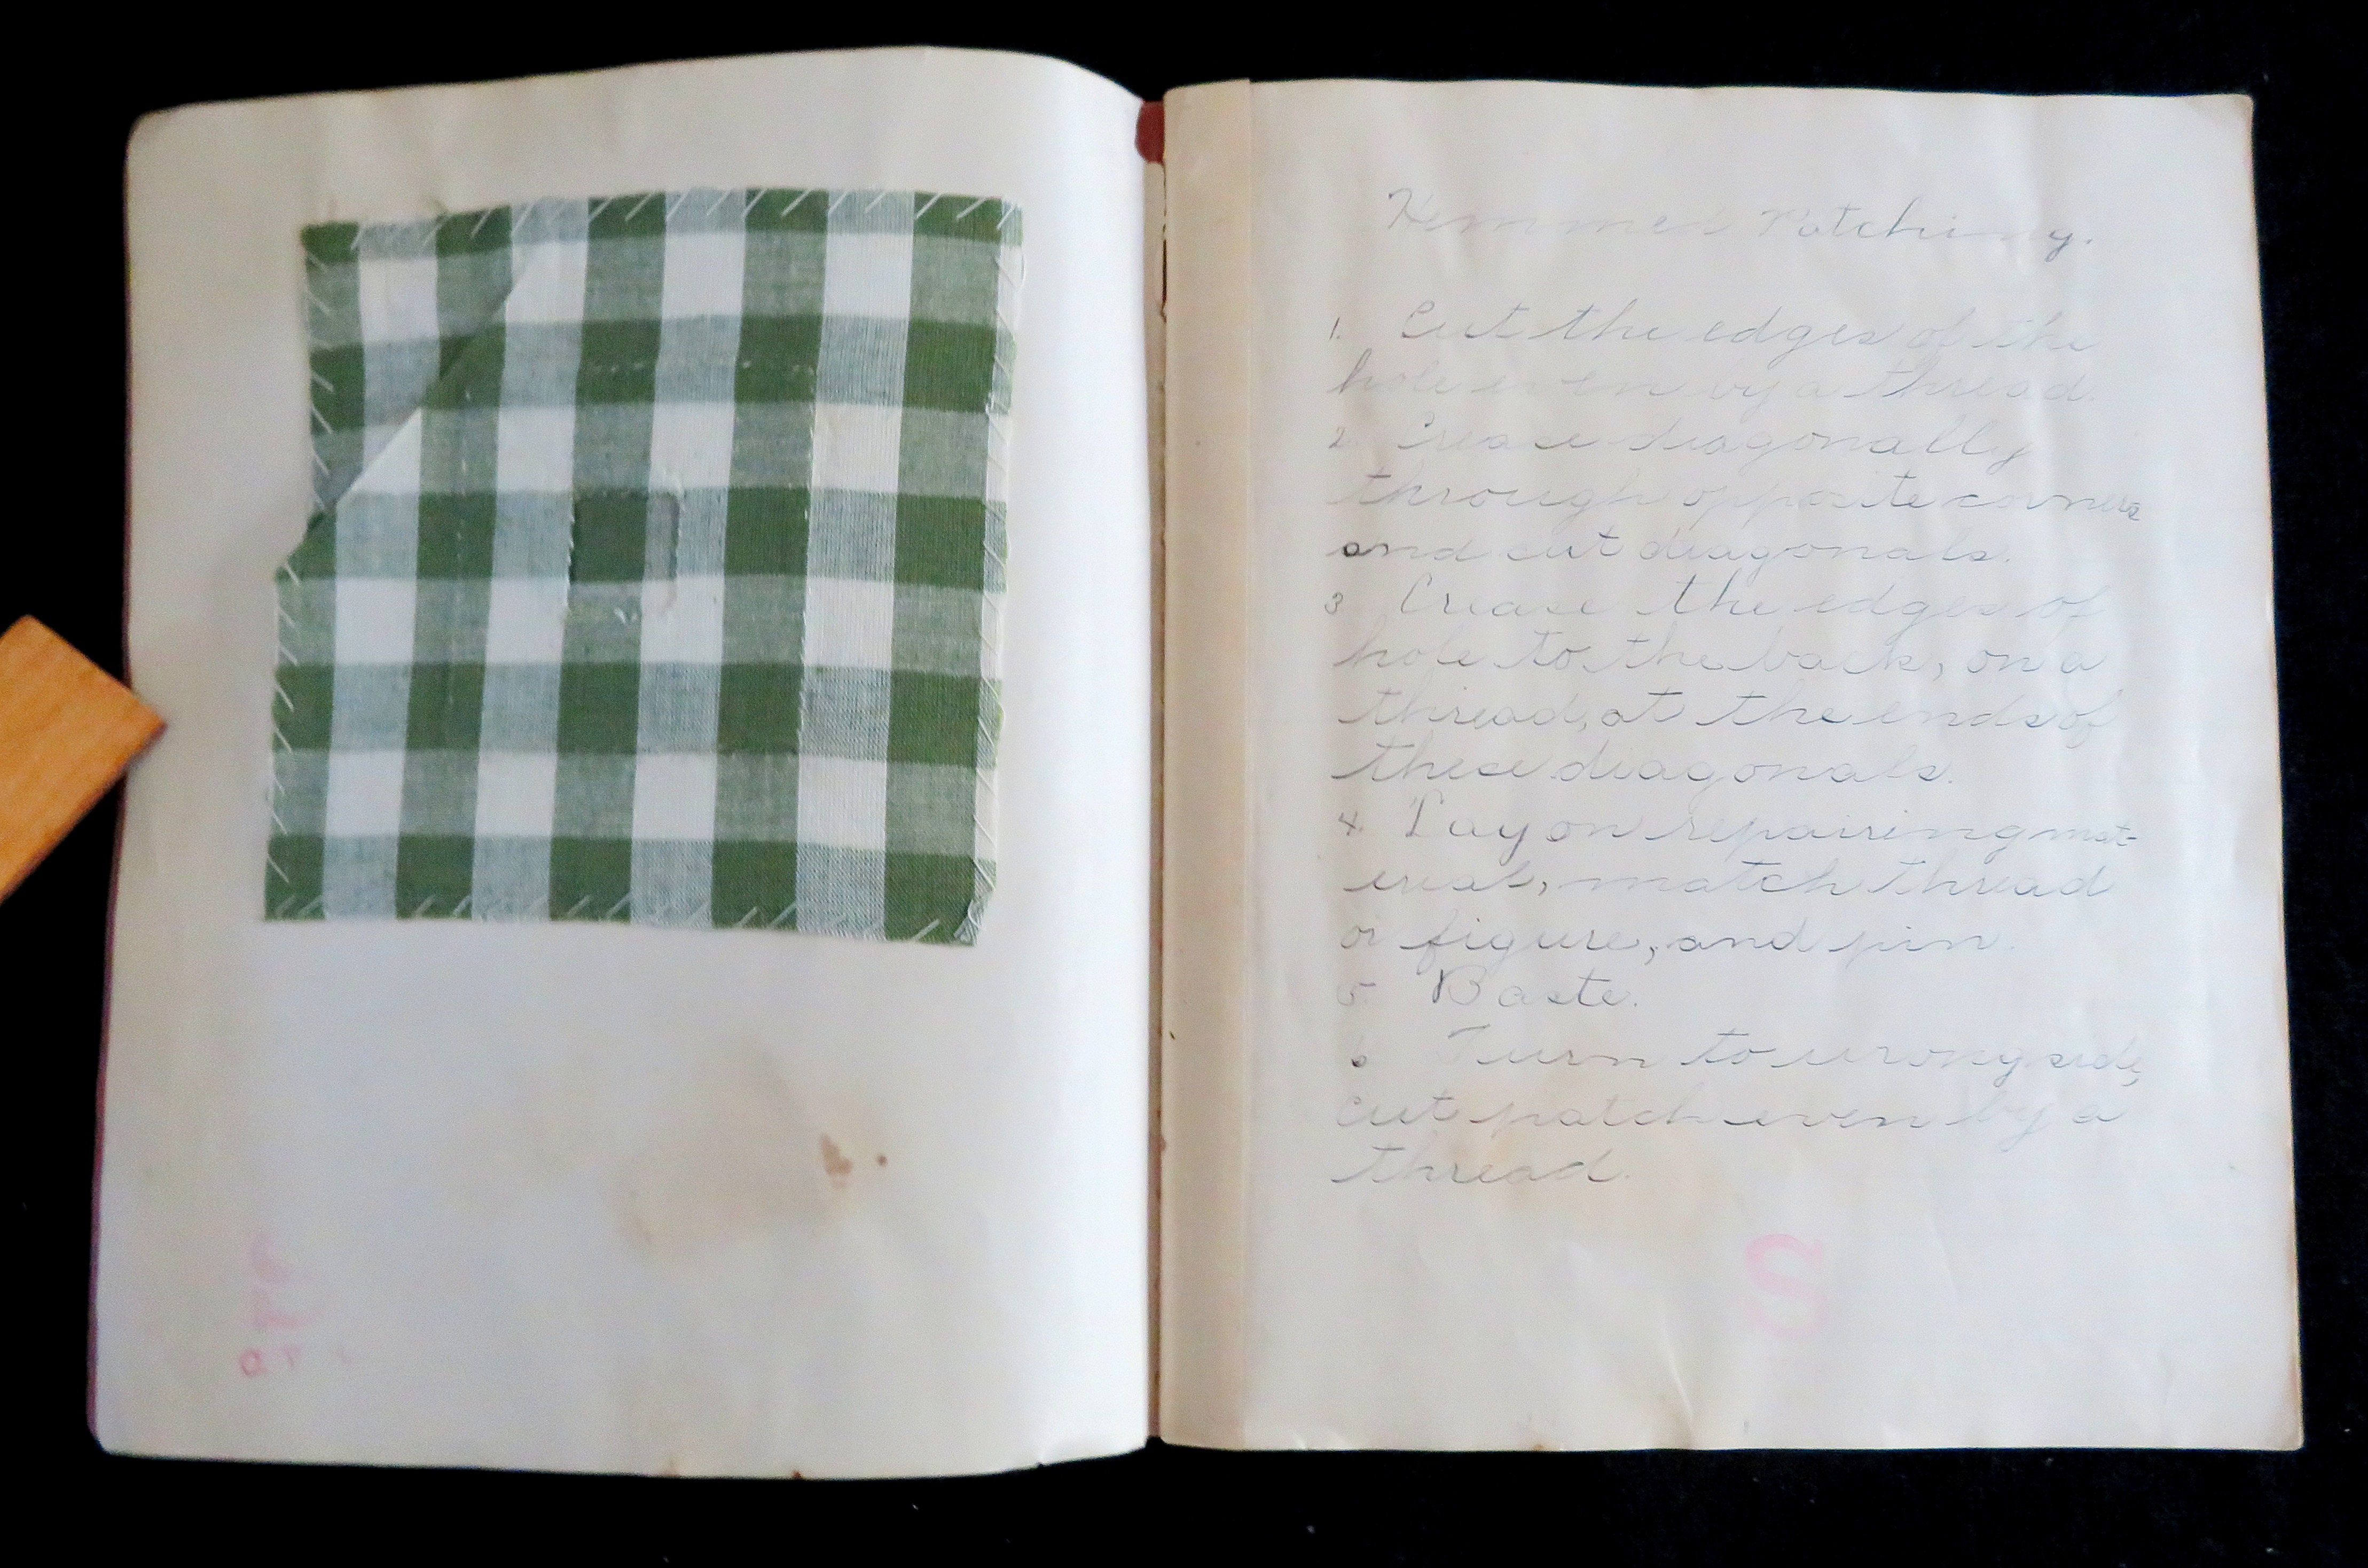 Hemmed Patching.
1. Cut the edges of the
hole even by a thread.
2 Crease diagonally
through opposite corners
and cut diagonals.
3 Crease the edges of
hole to the back, on a
thread, at the ends of
these diagonals.
4. Lay on repairing mat-
erial, match thread
or figure, and pin.
5. Baste.
6 Turn to wrong side,
cut patch even by a
thread.
S